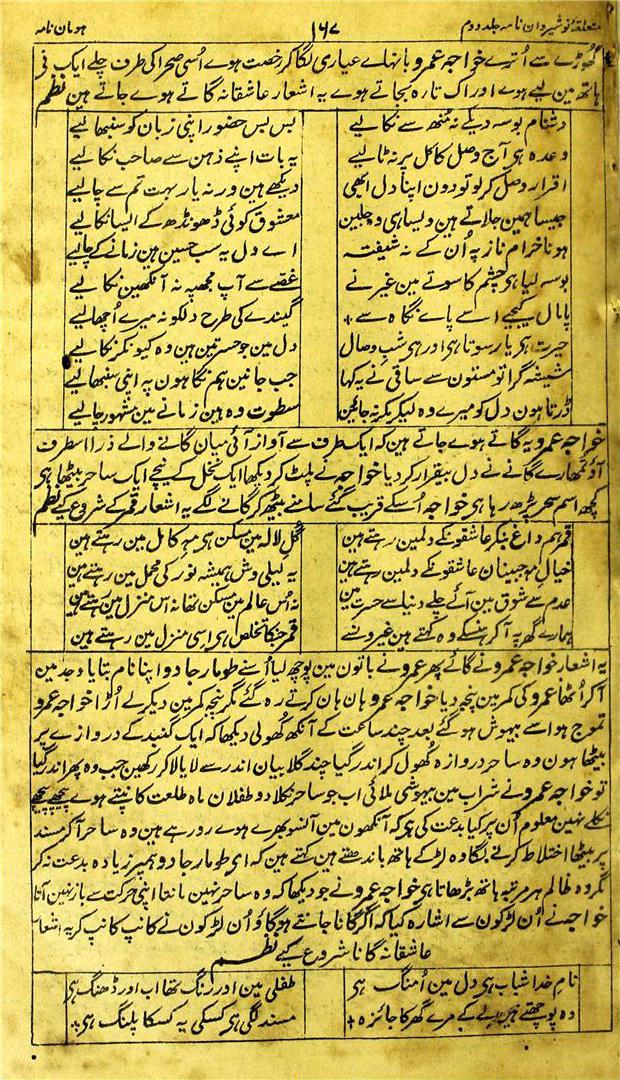 متعلقۂ نوشیروان نامہ جلد دوم ۱۶۷ ہومان نامہ
گھوڑے سے اُترے خواجہ عمرو بانہاے عیاری لگا کر رخصت ہوے اُسی صحرا کی طرف چلے ایک نی
ہاتھ مین لیے ہوے اور اک تارہ بجاتے ہوے یہ اشعار عاشقانہ گاتے ہوے جاتے ہین نظم
دشنام بوسہ دیکے نہ مُنھ سے نکالیے بس بس حضور اپنی زبان کو سنبھالیے
وعدہ ہی آج وصل کا کل پر نہ ٹالیے یہ بات اپنے ذہن سے صاحب نکالیے
اقرار وصل کر لو تو دون اپنا دل ابھی دیکھے ہین ورنہ یار بہت تم سے چالیے
جیسا ہمین جلاتے ہین ویسا ہی وہ جلین معشوق کوئی ڈھونڈھ کے ایسا نکالیے
ہونا خرام ناز پہ اُن کے نہ شیفتہ اے دل یہ سب حسین ہین زمانے کے چالیے
بوسہ لیا ہی چشم کا سوتے مین غیر نے غصے سے آپ مجھپہ نہ آنکھین نکالیے
پامال کیجیے اسے پاے نگاہ سے گیندے کی طرح دلکو نہ میرے اُچھالیے
حیرت ہی یار سوتا ہی اور ہی شب وصال دل مین جو حسرتین ہین وہ کیونکر نکالیے
شیشہ گرا تو مستون سے ساقی نے یہ کہا جب جانین ہم نگاہون پہ اپنی سنبھالیے
ڈرتا ہون دل کو میرے وہ لیکر مکر نہ جائین سطوت وہ ہین زمانے مین مشہور چالیے
خواجہ عمرو یہ گاتے ہوے جاتے ہین کہ ایک طرف سے آواز آئی میان گانے والے ذرا اسطرف
آؤ تمھارے گانے نے دل بیقرار کر دیا خواجہ نے پلٹ کر دیکھا ایک نخل کے نیچے ایک ساحر بیٹھا ہی
کچھ اسم سحر پڑھ رہا ہی خواجہ اُسکے قریب گئے سامنے بیٹھ کر گانے لگے یہ اشعار قمر کے شروع کیے نظم
قمر ہم داغ بنکر عاشقونکے دلمین رہتے ہین گل لالہ مین مسکن ہی مہ کامل مین رہتے ہین
خیال مہجبینان عاشقونکے دلمین رہتے ہین یہ لیلی وش ہمیشہ نور کی محمل مین رہتے ہین
عدم سے شوق مین آئے چلے دنیا سے حسرت مین نہ اُس عالم مین مسکن تھا نہ اس منزل مین رہتے ہین
ہمارے گھر پہ آکر ہنسکے وہ کہتے ہین غیرونسے قمر جنکا تخلص ہی اسی منزل مین رہتے ہین
یہ اشعار خواجہ عمرو نے گائے پھر عمرو نے باتون مین پوچھ لیا اُسنے طومار جادو اپنا نام بتایا وجد مین
آکر اُٹھا عمرو کی کمر مین پنجہ دیا خواجہ عمرو ہان ہان کرتے رہ گئے مگر پنجہ کمر مین دیکر لے اُڑا خواجہ عمرو
تموج ہوا سے بیہوش ہو گئے بعد چند ساعت کے آنکھ کھولی دیکھا کہ ایک گنبد کے دروازے پر
بیٹھا ہون وہ ساحر دروازہ کھول کر اندر گیا چند گلابیان اندر سے لایا لا کر رکھین جب وہ پھر اندر گیا
تو خواجہ عمرو نے شراب مین بیہوشی ملائی اب جو ساحر نکلا دو طفلان ماہ طلعت کانپتے ہوے پیچھے پیچھے
نکلے نہین معلوم اُن پر کیا بدعت کی ہی کہ آنکھون مین آنسو بھرے ہوے رو رہے ہین وہ ساحر آکر مسند
پر بیٹھا اختلاط کرنے لگا وہ لڑکے ہاتھ باندھتے ہین کہتے ہین کہ ای طومار جادو ہمپر زیادہ بدعت نہ کر
مگر وہ ظالم ہر مرتبہ ہاتھ بڑھاتا ہی خواجہ عمرو نے جو دیکھا کہ وہ ساحر نہین مانتا اپنی حرکت سے باز نہین آتا
خواجہ نے اُن لڑکون سے اشارہ کیا کہ اگر گانا جانتے ہو گاؤ اُن لڑکون نے کانپ کانپ کر یہ اشعار
عاشقانہ گانا شروع کیے نظم
نام خدا شباب ہی دل مین اُمنگ ہی طفلی مین اور رنگ تھا اب اور ڈھنگ ہی
وہ پوچھتے ہین لیکے مرے گھر کا جائزہ مسند لگی ہی کسکی یہ کسکا پلنگ ہی